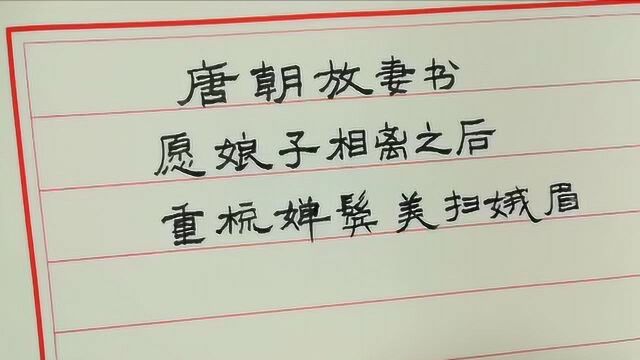 唐朝放妻书
愿娘子相离之后
重梳婵鬓美扫娥眉